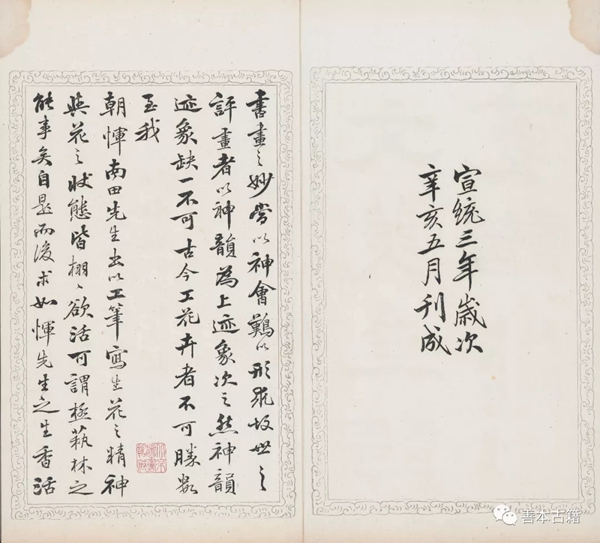 宣統三年歲次
辛亥五月刊成
書畫之妙當以神會難以形故世之
評畫者以神韻為上迹象次之然神韻
迹象缺一不可古今工花卉者不可勝數
至我
朝惲南田先生出以工筆寫生花之精神
與花之狀態皆栩〻欲活可謂極蓺林之
能事矣自是而後求如惲先生之生香活
善本古籍